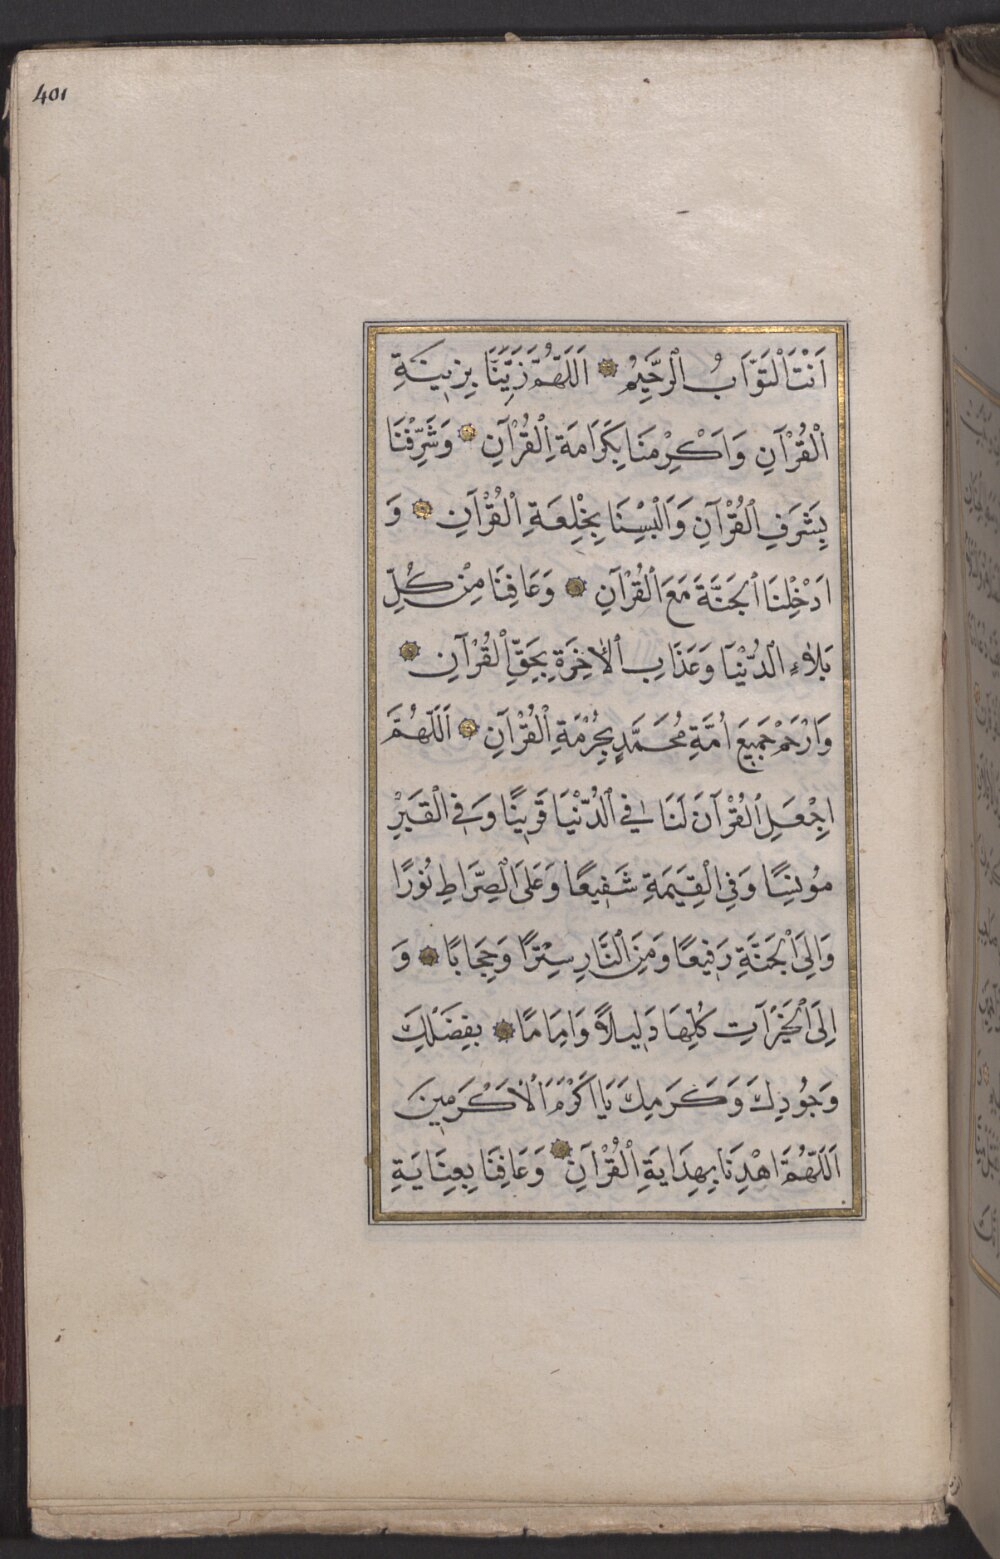 401
اَنْتَ الْتَّوَّابُ الْرَّحِيْمُ ۞ اَللّٰهُمَّ زَيِّنَّا بِزِينَةِ
الْقُرْآنِ وَاَكْرِمْنَا بِكَرَامَةِ الْقُرْآنِ ۞ وَشَرِّفْنَا
بِشَرَفِ الْقُرْآنِ وَاَلْبِسْنَا بِخِلْعَةِ الْقُرْآنِ ۞ وَ
اَدْخِلْنَا الْجَنَّةَ مَعَ الْقُرْآنِ ۞ وَعَافِنَا مِنْ كُلِّ
بَلَاءِ الْدُّنْيَا وَعَذَابِ الْاٰخِرَةِ بِحَقِّ الْقُرْآنِ ۞
وَارْحَمْ جَمِيعَ اُمَّةِ مُحَمَّدٍ بِحُرْمَةِ الْقُرْآنِ ۞ اَللّٰهُمَّ
اِجْعَلِ الْقُرْآنَ لَنَا فِي الْدُّنْيَا قَرِينًا وَفِي الْقَبْرِ
مُونِسًا وَفِي الْقِيَمَةِ شَفِيعًا وَعَلَى الْصِّرَاطِ نُوْرًا
وَاِلَى الْجَنَّةِ رَفِيعًا وَمِنَ الْنَّارِ سِتْرًا وَحِجَابًا ۞ وَ
اِلَى الْخَيْرَاتِ كُلِّهَا دَلِيلًا وَاِمَامًا ۞ بِفَضْلِكَ
وَجُودِكَ وَكَرَمِكَ يَا اَكْرَمَ الْاَكْرَمِينَ
اَللّٰهُمَّ اهْدِنَا بِهِدَايَةِ الْقُرْاٰنِ ۞ وَعَافِنَا بِعِنَايَةِ